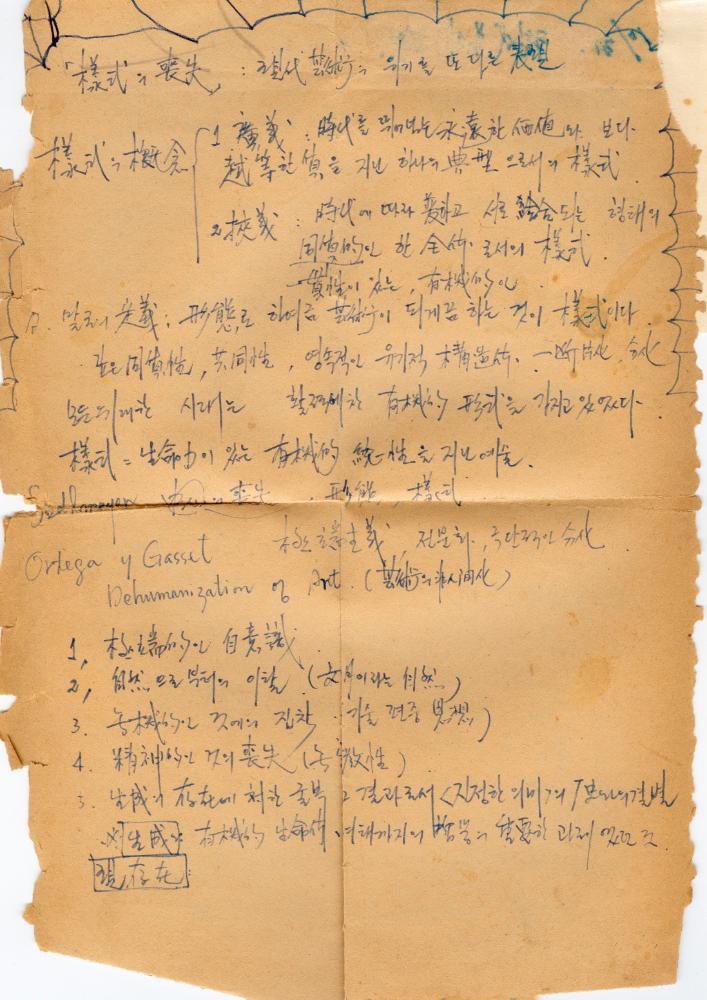 「樣式의 喪失」 : 現代藝術의 위기를 또 다른 表現
樣式의 槪念
1 廣義 : 時代를 뛰어넘는 永遠한 価値와 보다
越等한 値을 지닌 하나의 典型 으로서의 樣式
2. 狹義 : 時代에 따라 変하고 서로 結合되는 형태의
同質的인 한 全体로서의 樣式.
一貫性이 있는, 有機的인
定義 ; 形態로 하여금 藝術이 되게끔 하는 것이 樣式이다
同質性, 共同性, 영속적인 유기적 構造体.
모든 위대한 시대는 有機的 形式을 가지고 있었다.
樣式 = 生命力이 있는 有機的 統一性을 지닌 예술.
Sedlmayer 中心의 喪失. 形態, 樣式
Ortega y Gasset 極端主義, 전문화, 극단적인 分化
Dehumanization of Art. (藝術의 非人間化)
1, 極端的인 自意識
2, 自然으로부터의 이탈 (文明이라는 自然)
3. 無機的인 것에의 집착. 기술 편중 思想)
4. 精神的인 것의 喪失 (無 性)
5. 生成의 存在에 처한 그 결과로서 <진정한 의미>의 결별
生成 有機的 生命体. 여태까지의 重要한 과제였으므로
現存在